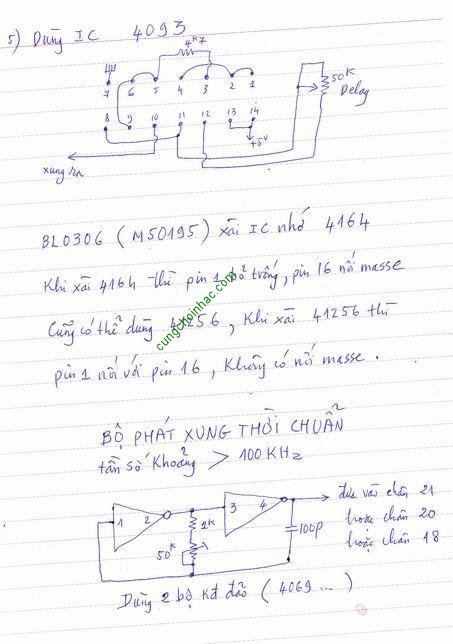 5) Dùng IC 4093
4K7
7 6 5 4 3 2 1
50K
Delay
8 9 10 11 12 13 14
+5V
xung ra
BL0306 (M50195) xài IC nhớ 4164
Khi xài 4164 thì pin 1 bỏ trống, pin 16 nối masse
Cũng có thể dùng 41256, Khi xài 41256 thì
pin 1 nối với pin 16, Không có nối masse.
cungchoinhac.com
BỘ PHÁT XUNG THỜI CHUẨN
tần số Khoảng > 100 KHz
1 2 3 4
1K
50K
100P
đưa vào chân 21
hoặc chân 20
hoặc chân 18
Dùng 2 bộ Kđ đảo (4069...)